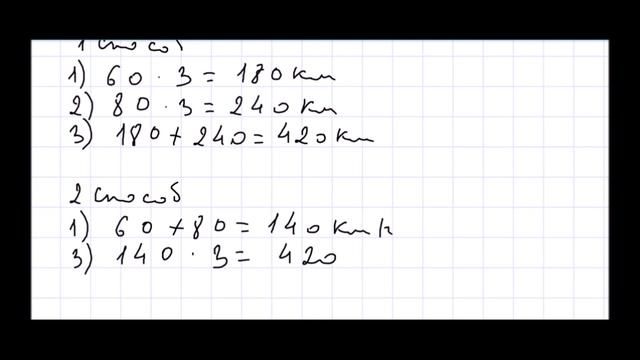 1 способ
1) 60 · 3 = 180 км
2) 80 · 3 = 240 км
3) 180 + 240 = 420 км
2 способ
1) 60 + 80 = 140 км/ч
3) 140 · 3 = 420